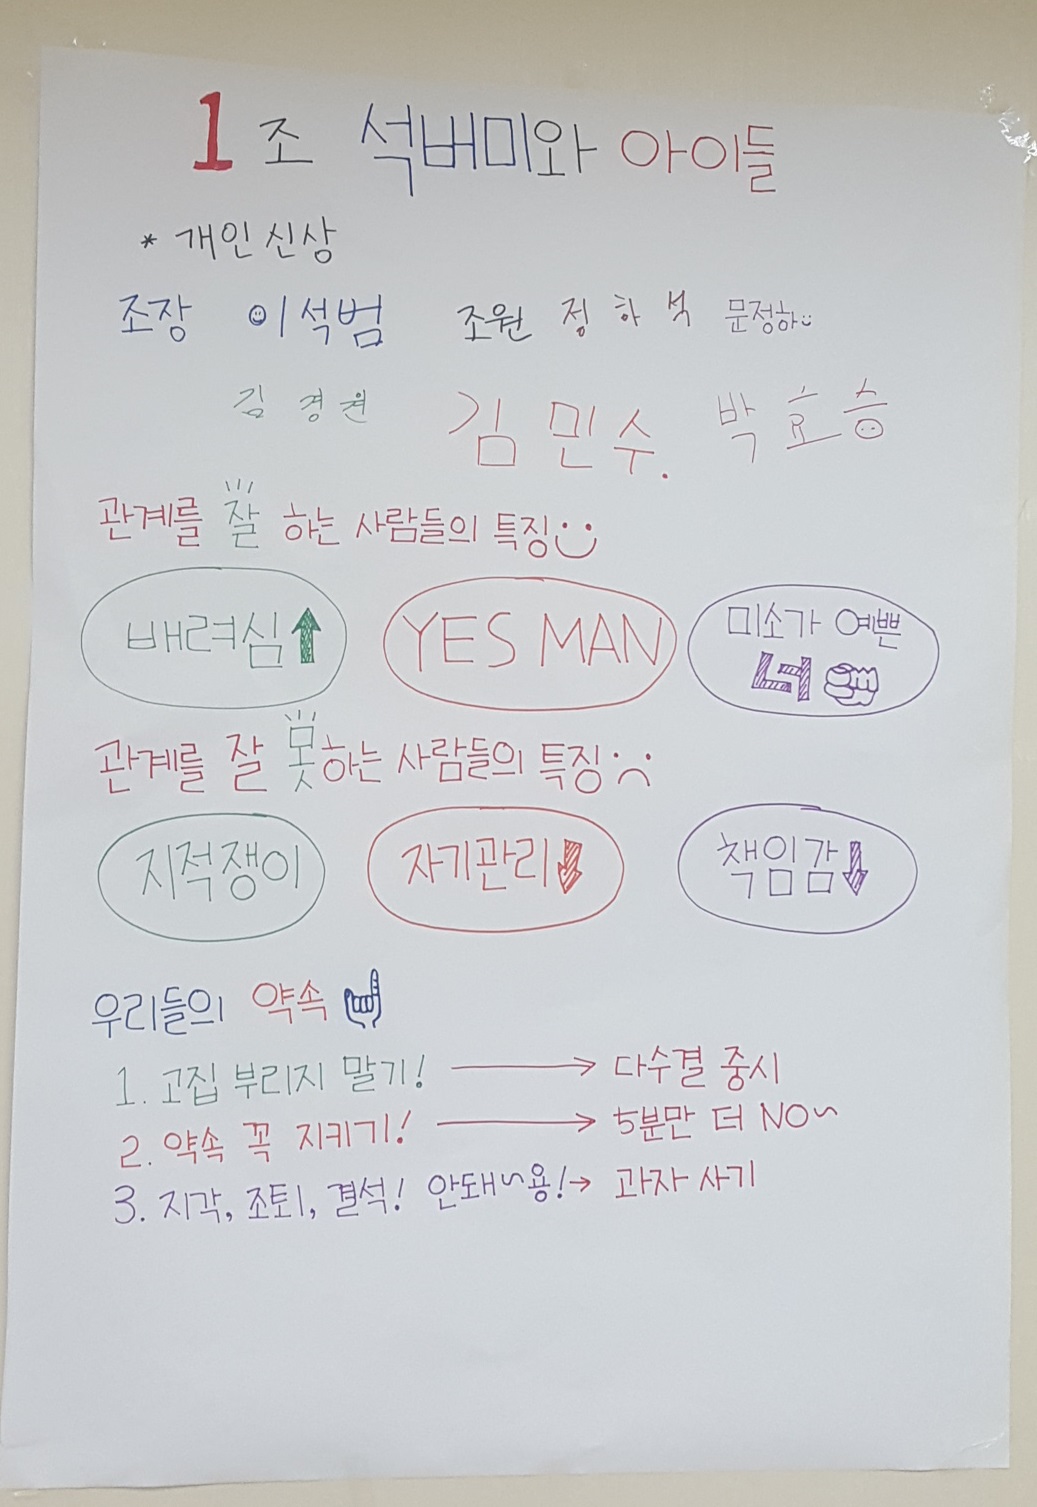 1조 석버미와 아이들
* 개인신상
조장 이석범 조원 정하석 문정하
김경원 김민수. 박효승
관계를 잘 하는 사람들의 특징
배려심 YES MAN 미소가 예쁜
너
관계를 잘 못하는 사람들의 특징
지적쟁이 자기관리 책임감
우리들의 약속
1. 고집 부리지 말기! → 다수결 중시
2. 약속 꼭 지키기! → 5분만 더 NO~
3. 지각, 조퇴, 결석! 안돼~용! → 과자 사기